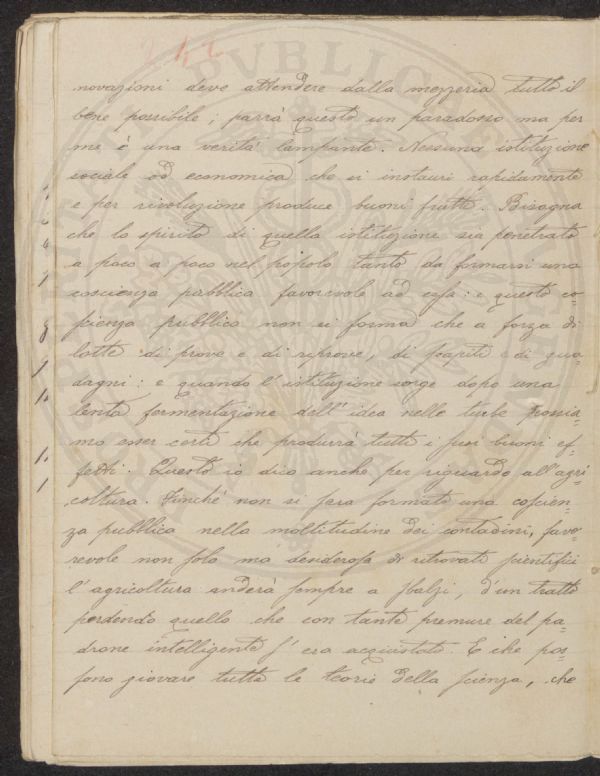 242
novazioni deve attendere dalla mezzeria tutto il
bene possibile; parrà questo un paradosso ma per
me è una verità lampante. Nessuna istituzione
sociale od economica che si instauri rapidamente
e per rivoluzione produce buoni frutti. Bisogna
che lo spirito di quella istituzione sia penetrato
a poco a poco nel popolo tanto da formarsi una
coscienza pubblica favorevole ad essa: e questa co-
scienza pubblica non si forma che a forza di
lotte di prove e di riprove, di scapiti e di gua-
dagni: e quando l'istituzione sorge dopo una
lenta fermentazione dell'idea nelle turbe possia-
mo esser certi che produrrà tutti i suoi buoni ef-
fetti. Questo io dico anche per riguardo all'agri-
coltura. Finchè non si sara formata una coscien-
za pubblica nella moltitudine dei contadini, favo-
revole non solo ma desiderosa di ritrovati scientifici
l'agricoltura anderà sempre a sbalzi, d'un tratto
perdendo quello che con tante premure del pa-
drone intelligente s'era acquistato. E che pos-
sono giovare tutte le teorie della scienza, che